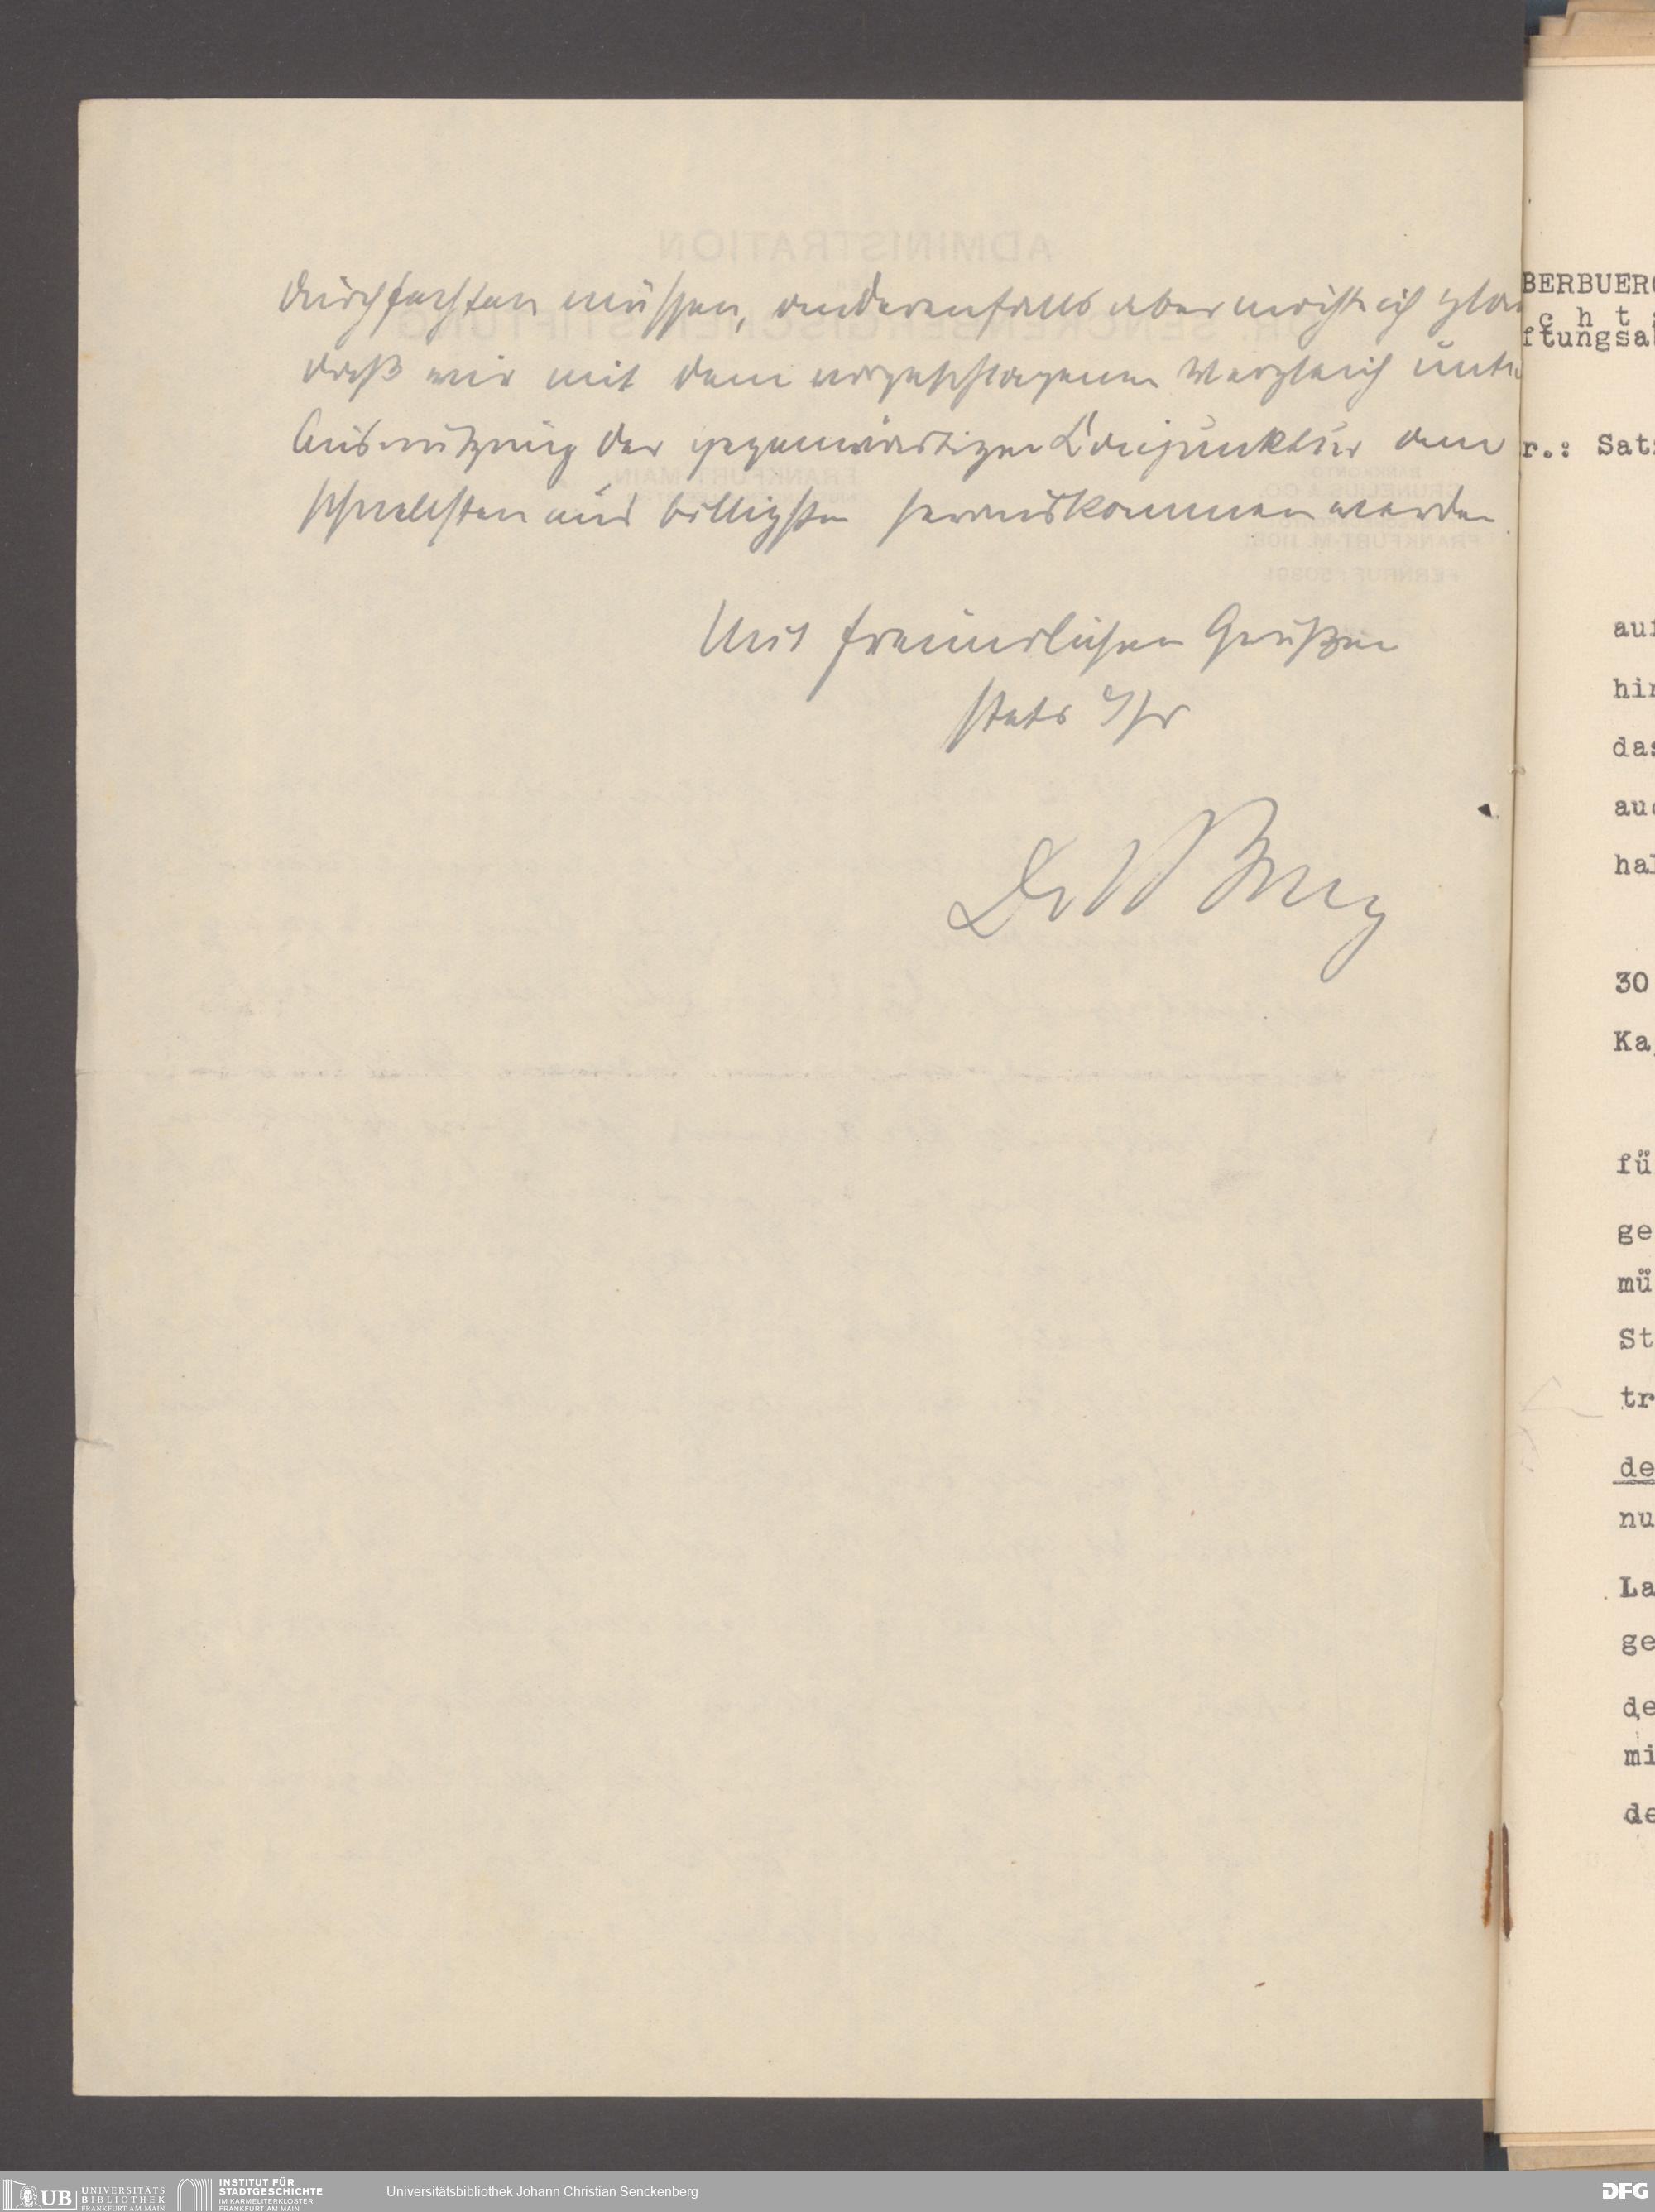 durchfechten müssen, anderenfalls aber möchte ich glau
daß wir mit dem vorgeschlagenen Vergleich unter
Ausnützung der gegenwärtigen Konjunktur am
schnellsten und billigsten herauskommen werden.
Mit freundlichen Grüßen
stets Ihr
Dr
BERBUER
c h t
ftungsa
r.: Sat
auf
hin
das
auc
hal
30
Ka
fü
ge
mü
St
tr
de
nu
La
ge
de
mi
de
ADMINISTRATION
SENCKENBERGISCHE STIFTUNG
FRANKFURT-MAIN
UB UNIVERSITÄTS
BIBLIOTHEK
FRANKFURT AM MAIN
INSTITUT FÜR
STADTGESCHICHTE
IM KARMELITERKLOSTER
FRANKFURT AM MAIN
Universitätsbibliothek Johann Christian Senckenberg
DFG